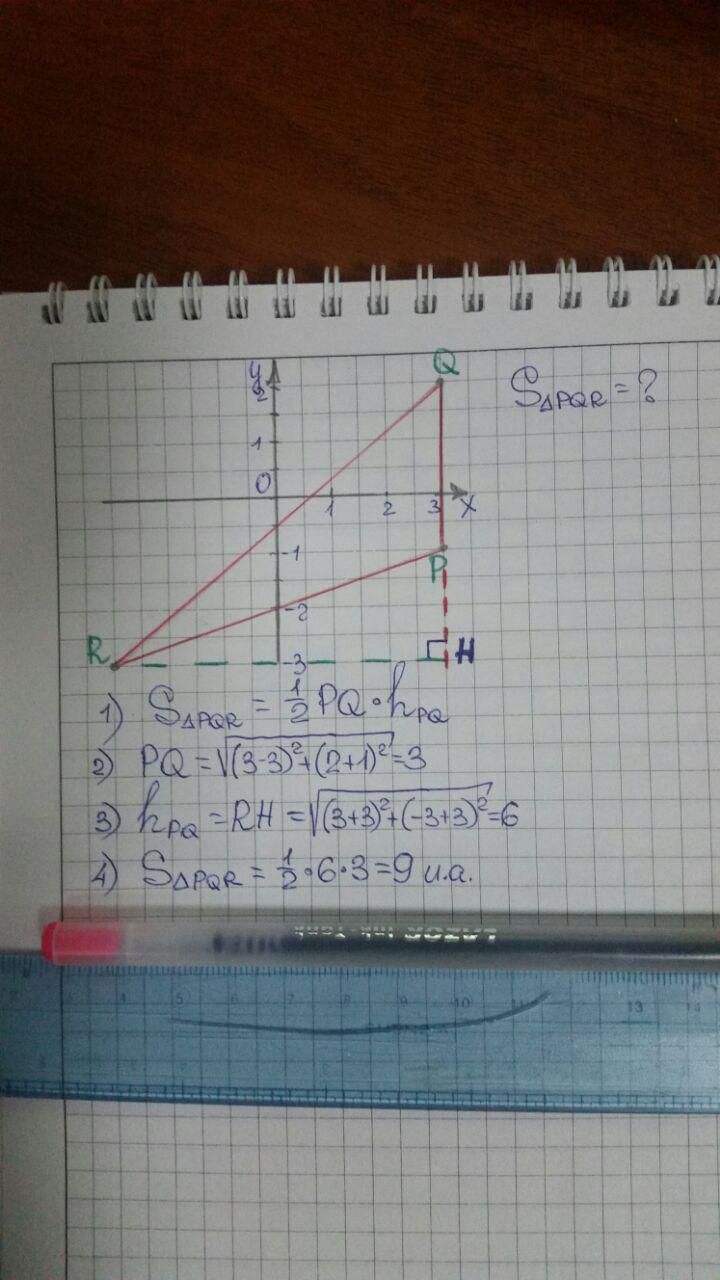 y
Q
2
S△PQR = ?
1
0
1 2 3 X
-1
P
-2
R
-3
H
1) S△PQR = 1/2 PQ · hPQ
2) PQ = √((3-3)²+(2+1)²) = 3
3) hPQ = RH = √((3+3)²+(-3+3)²) = 6
4) S△PQR = 1/2 · 6 · 3 = 9 u.a.
4 5 6 7 8 9 10 11 12 13 14